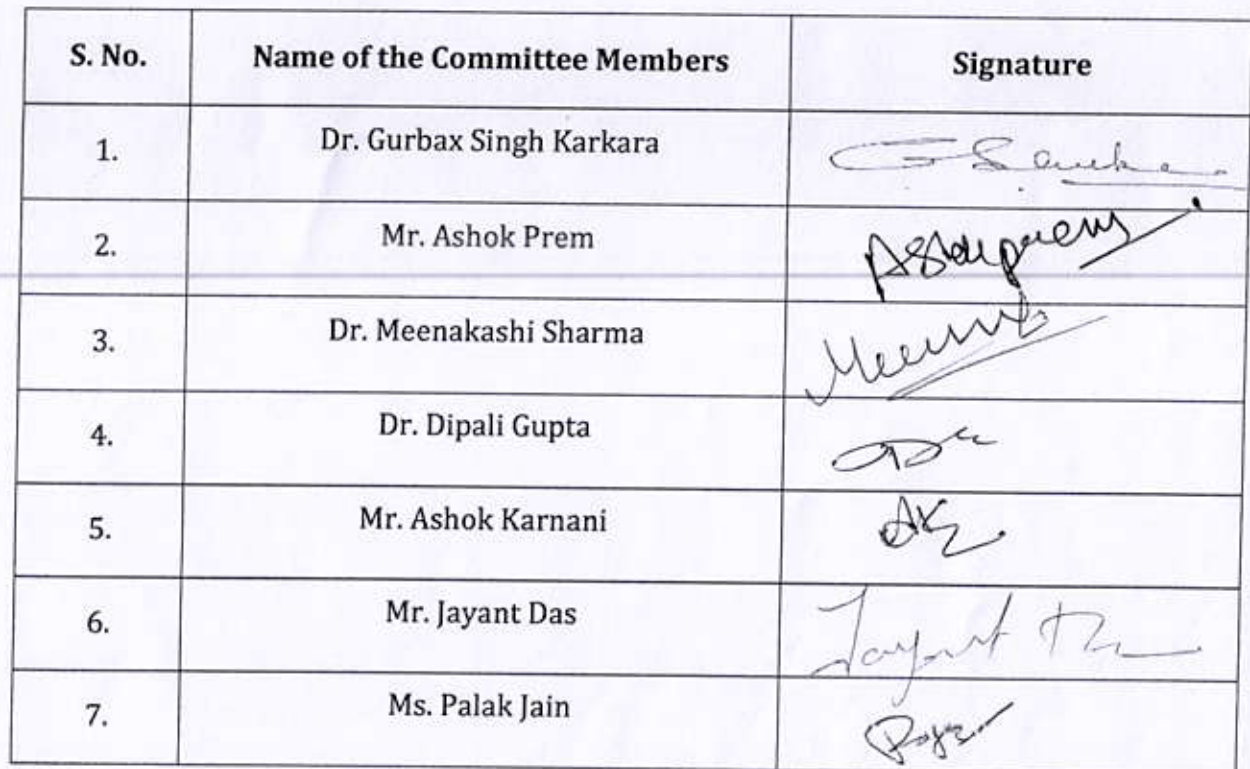 S. No. Name of the Committee Members Signature
1. Dr. Gurbax Singh Karkara
2. Mr. Ashok Prem
3. Dr. Meenakashi Sharma
4. Dr. Dipali Gupta
5. Mr. Ashok Karnani
6. Mr. Jayant Das Jayant
7. Ms. Palak Jain